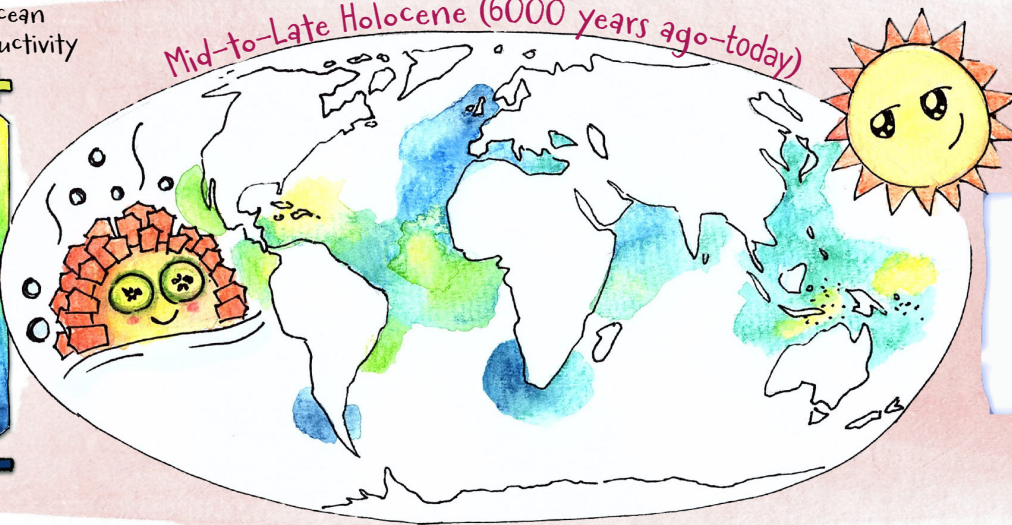 cean
uctivity
Mid-to-Late Holocene (6000 years ago-today)